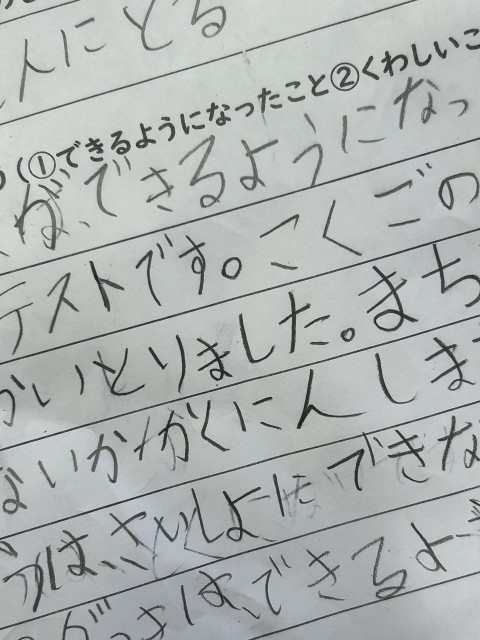 人にとる
(①できるようになったこと②くわしいこ
が、できるようになっ
テストです。こくごの
かいとりました。まち
ないかかくにんしま
は、さいしょは できな
がっきは、できるよ